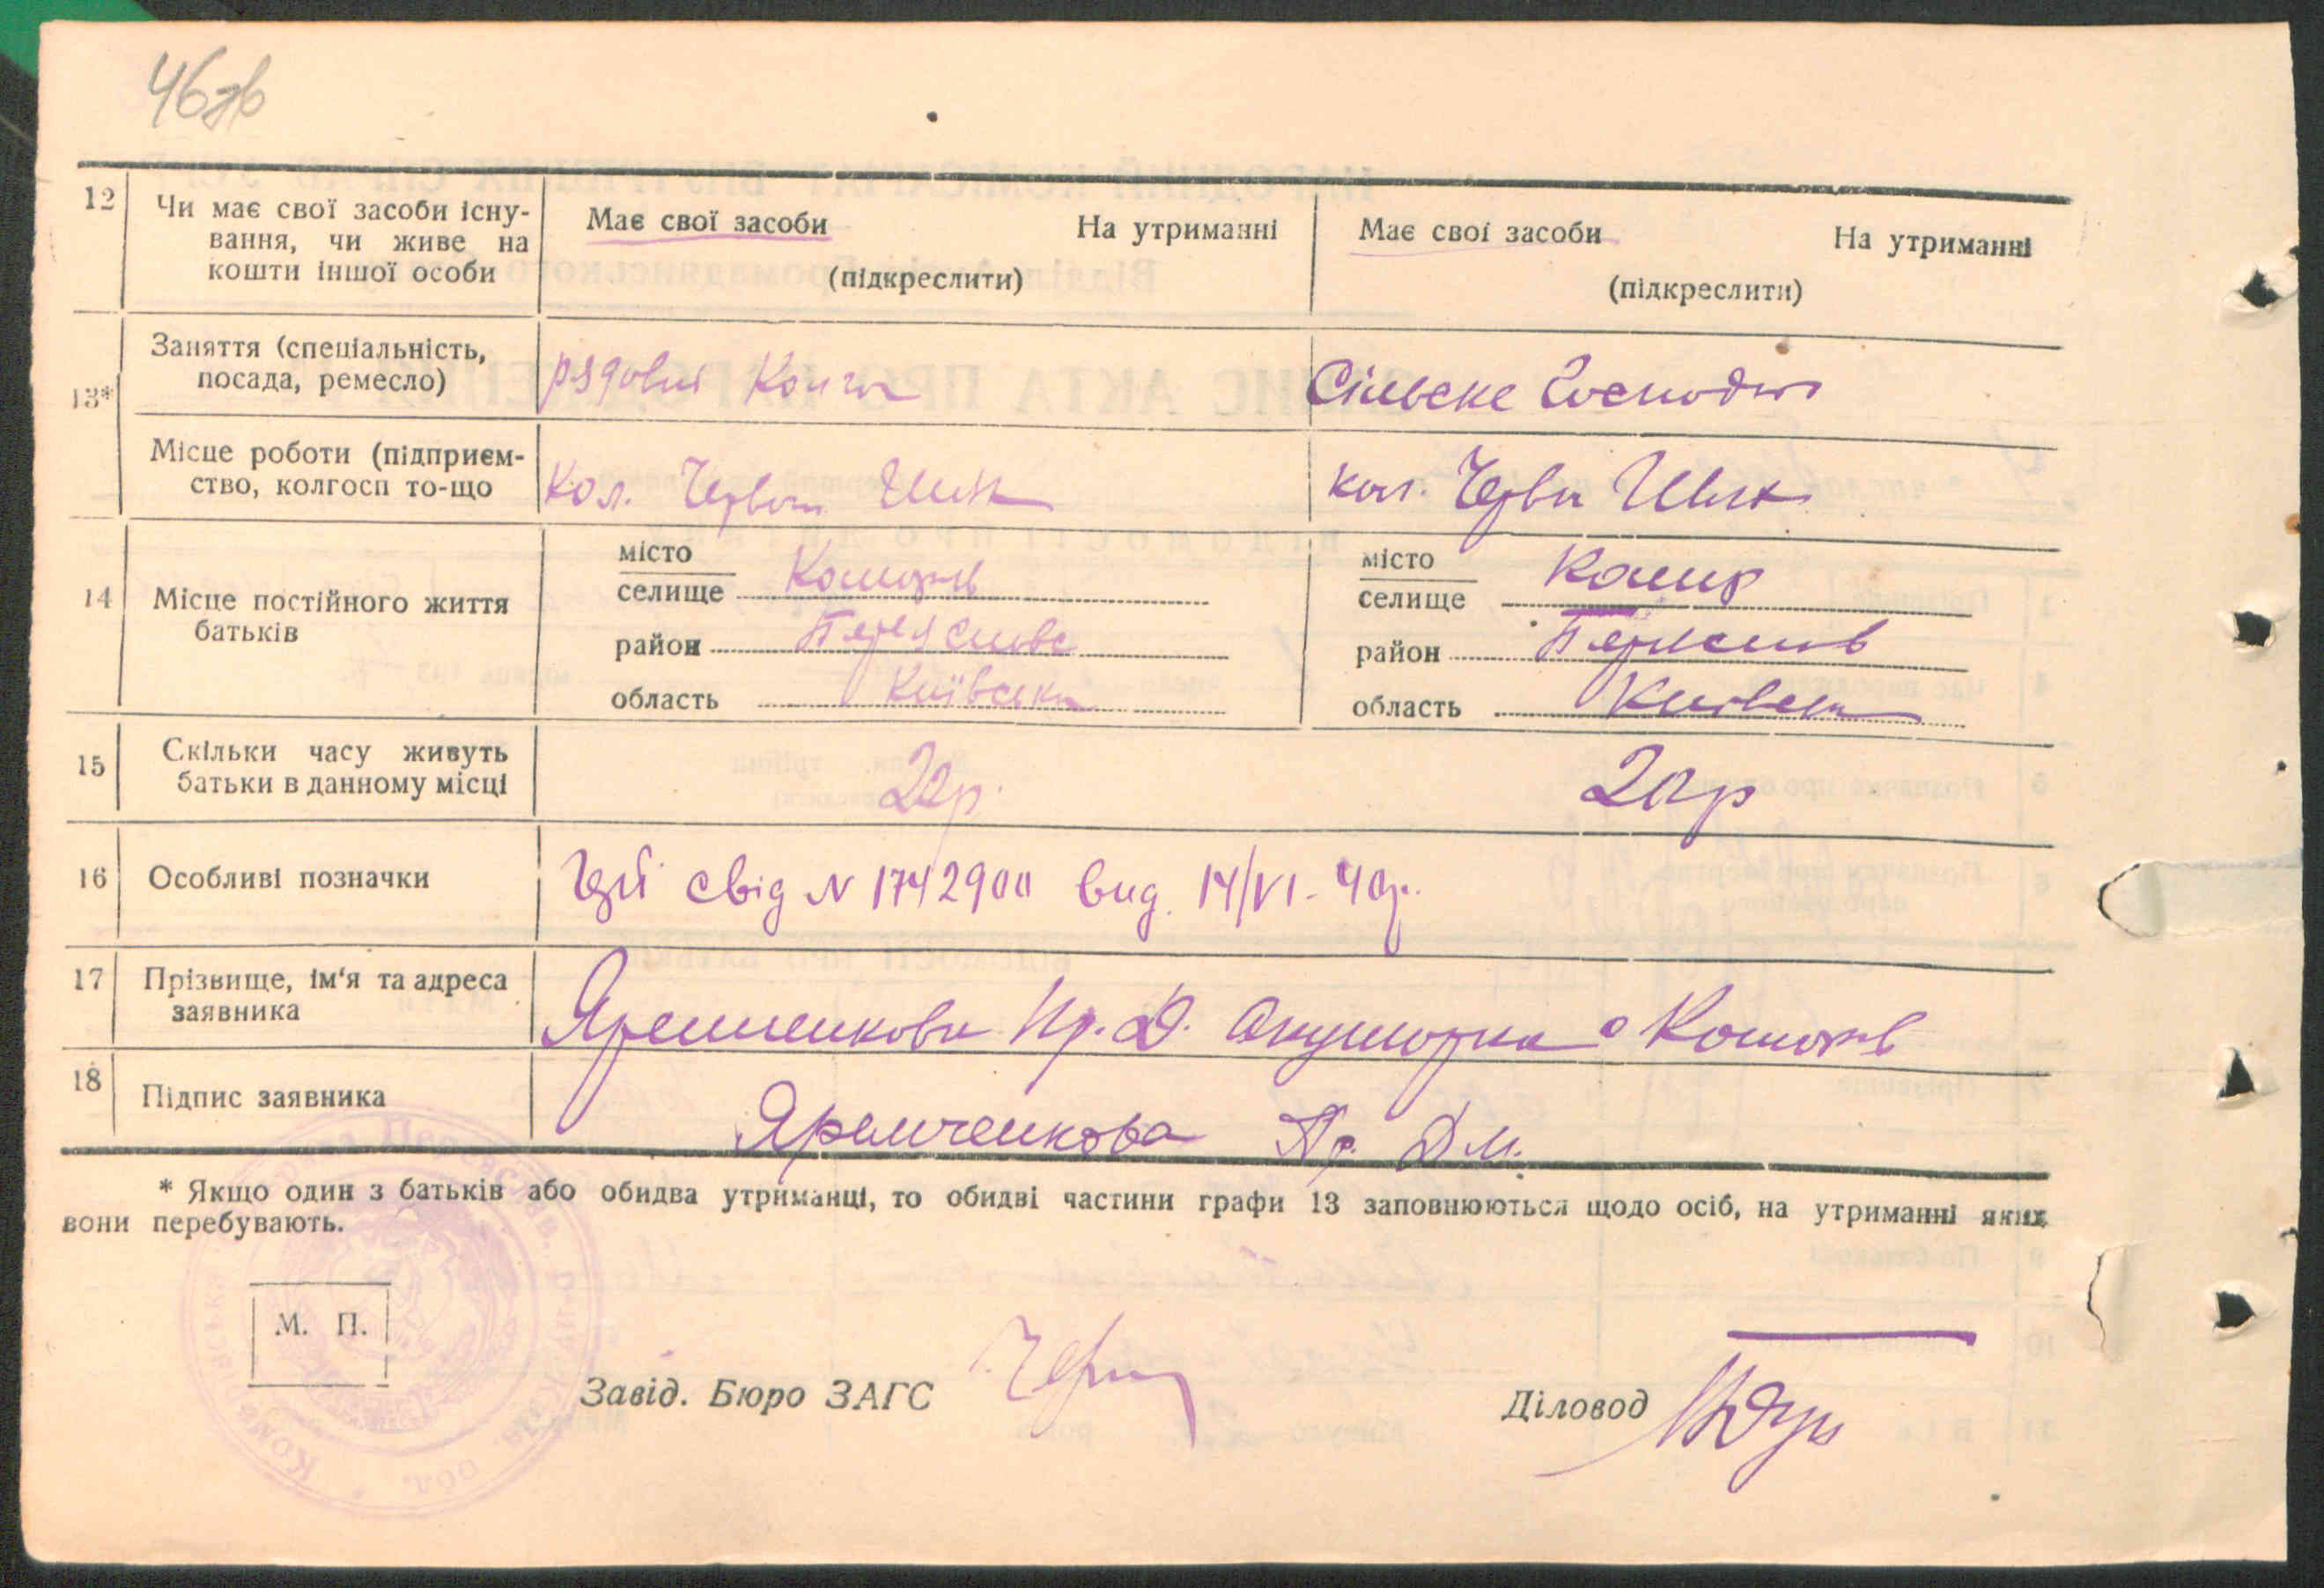 46зв
12 Чи має свої засоби існу- Має свої засоби На утриманні Має свої засоби На утриманні
вання, чи живе на
кошти іншої особи (підкреслити) (підкреслити)
13* Заняття (спеціальність, Сільське
посада, ремесло)
Місце роботи (підприєм- Кол. Червон Шлях кол. Черв Шлях
ство, колгосп то-що
14 Місце постійного життя батьків
місто селище місто селище
район Переяслове район Переяслов
область Київська область Київська
15 Скільки часу живуть
батьки в данному місці 22р. 20р
16 Особливі позначки свід N 1742900 вид. 14/VI-40р.
17 Прізвище, ім'я та адреса
заявника Яремченкова Пр. Д. Акушорка
18 Підпис заявника Яремченкова Пр. Дм.
* Якщо один з батьків або обидва утриманці, то обидві частини графи 13 заповнюються щодо осіб, на утриманні яких
вони перебувають.
М. П.
Завід. Бюро ЗАГС
Діловод